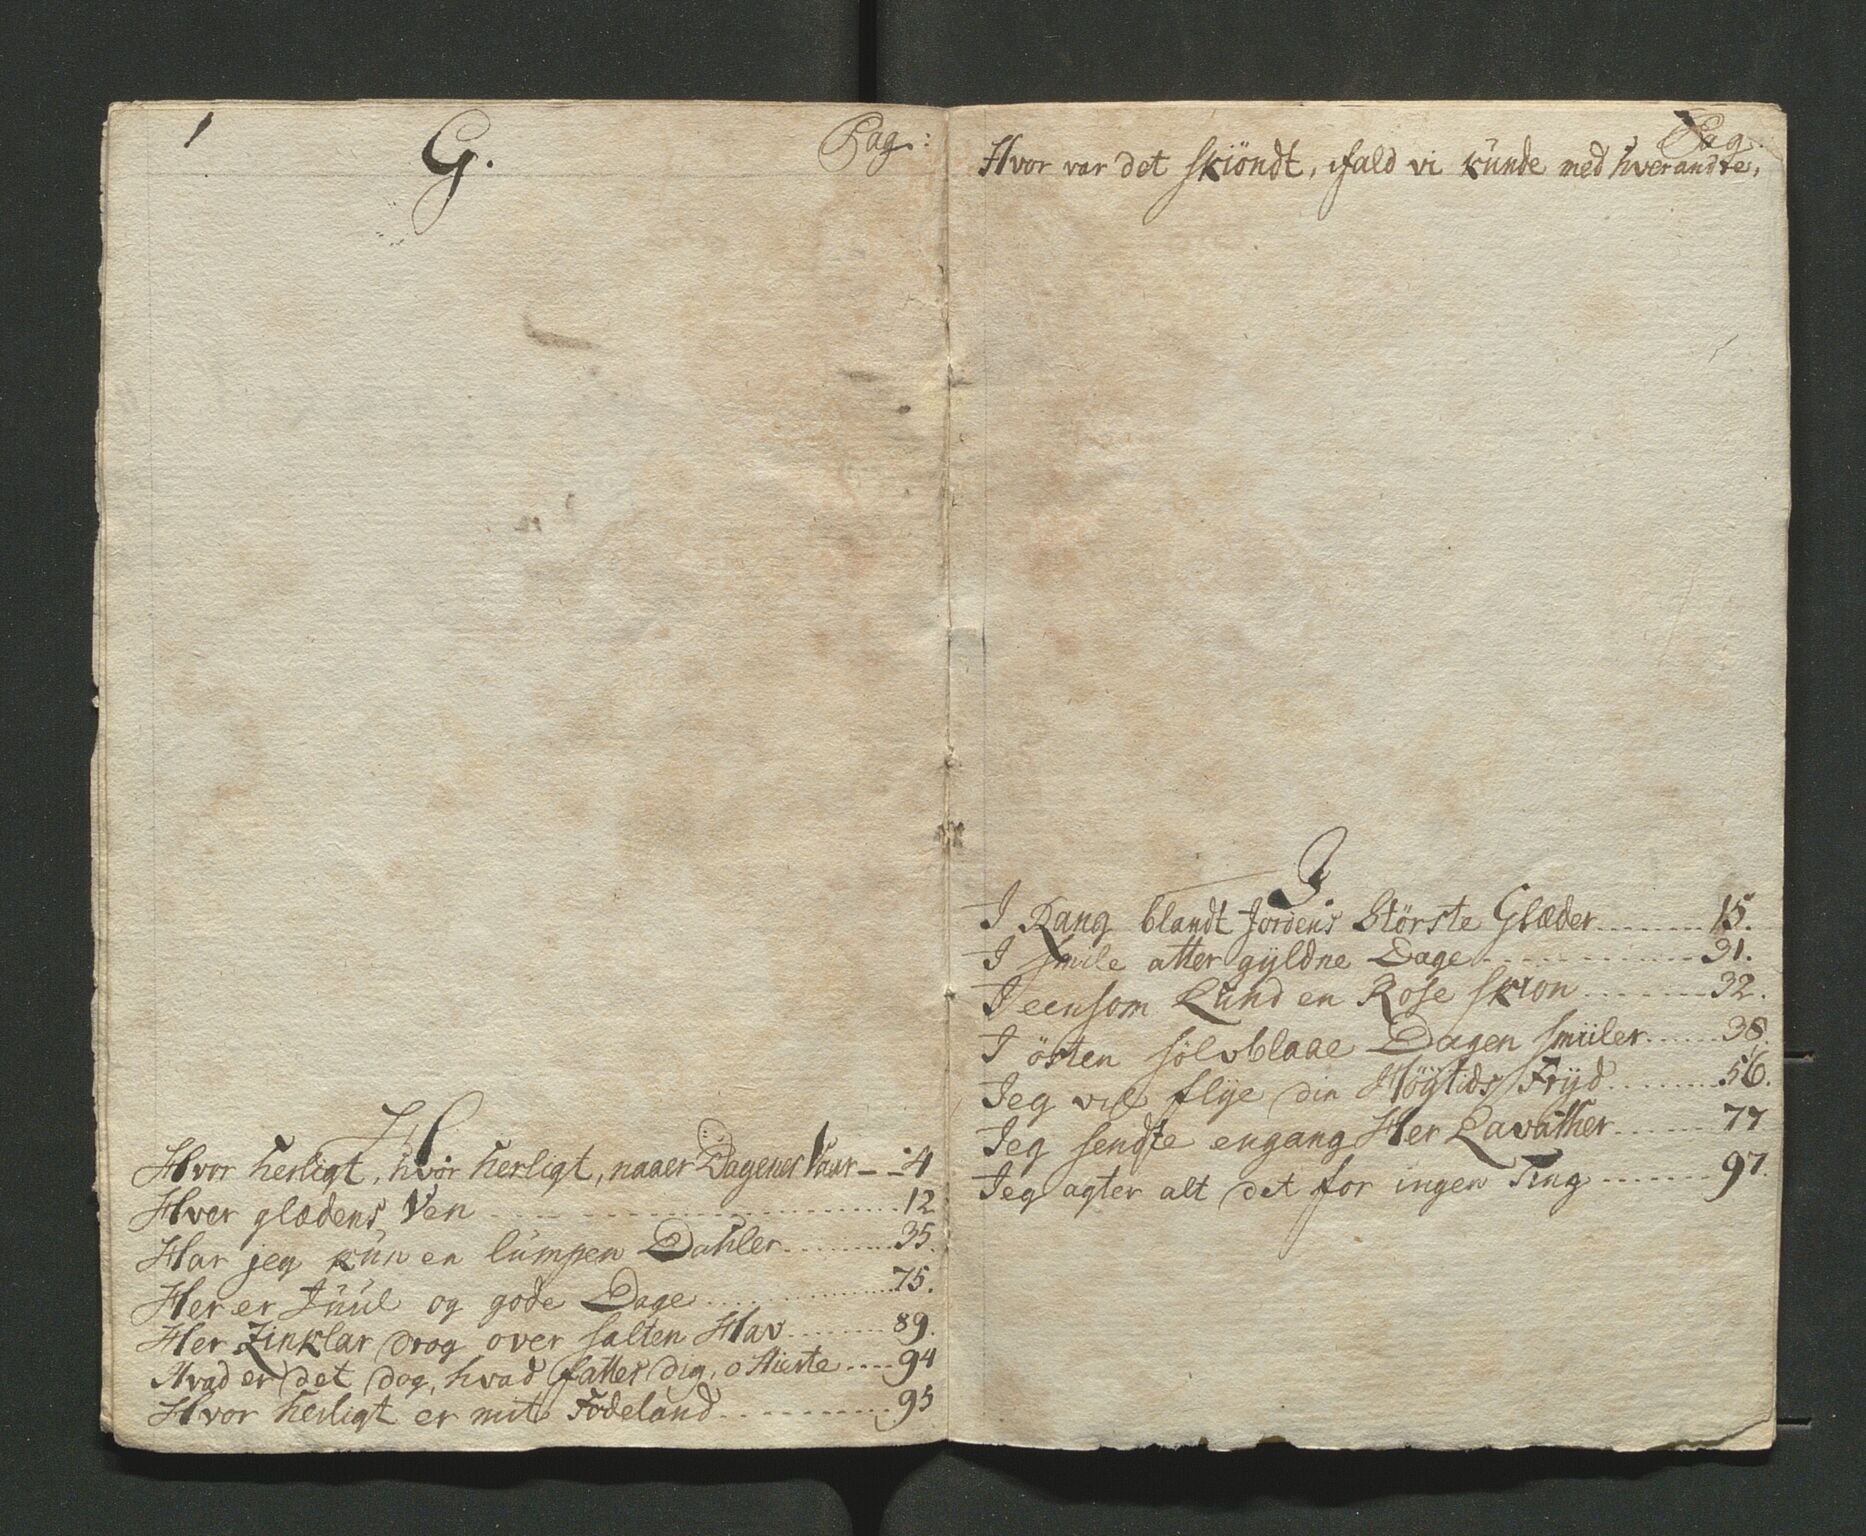 G. Pag:
H
Hvor herligt, hvor herligt, naaer Dagenes Vaar 4
Hver glædens Ven 12
Har jeg kun en lumpen Dahler 35.
Her er Juul og gode Dage 75.
Her Zinklar drog over salten Hav 89.
Hvad er det dog, hvad fattes dig, o Hierte 94
Hvor herligt er mit Födeland 95
Pag:
Hvor var det skiöndt, ifald vi kunde med hverandre,
I.
I Rang blandt Jordens Störste Glæder 15.
I smile atter gyldne Dage 31.
I eensom Lund en Rose skion 32.
I östen sölvblaae Dagen smiiler 38.
Jeg vil flye din Höytids Fryd 56.
Jeg sendte engang Her Lavather 77
Jeg agter alt det for ingen Ting 97.